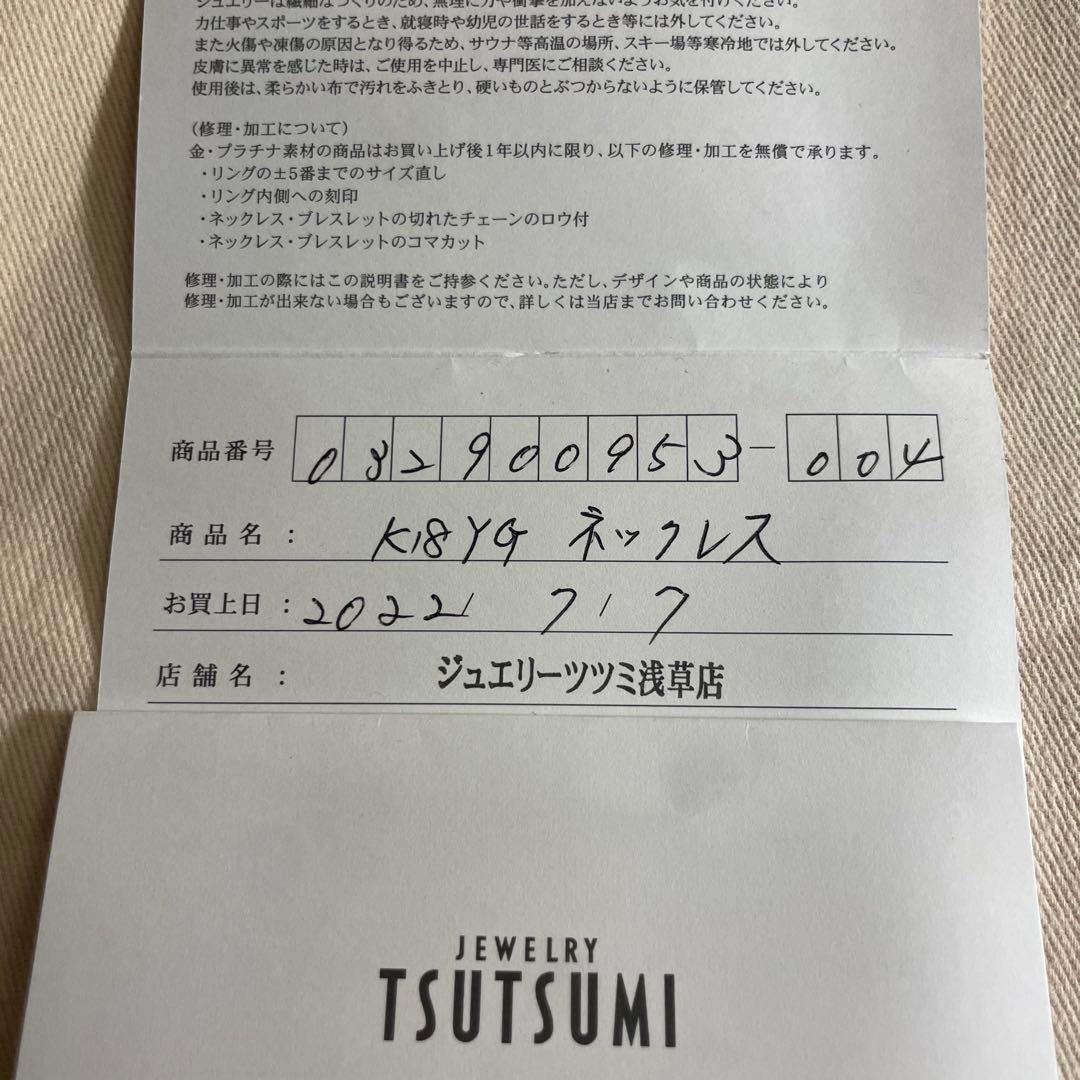 ジュエリーは繊細なつくりのため、無理に力や衝撃を加えないようお気を付けください。
力仕事やスポーツをするとき、就寝時や幼児の世話をするとき等には外してください。
また火傷や凍傷の原因となり得るため、サウナ等高温の場所、スキー場等寒冷地では外してください。
皮膚に異常を感じた時は、ご使用を中止し、専門医にご相談ください。
使用後は、柔らかい布で汚れをふきとり、硬いものとぶつからないように保管してください。
（修理・加工について）
金・プラチナ素材の商品はお買い上げ後1年以内に限り、以下の修理・加工を無償で承ります。
・リングの±5番までのサイズ直し
・リング内側への刻印
・ネックレス・ブレスレットの切れたチェーンのロウ付
・ネックレス・ブレスレットのコマカット
修理・加工の際にはこの説明書をご持参ください。ただし、デザインや商品の状態により
修理・加工が出来ない場合もございますので、詳しくは当店までお問い合わせください。
商品番号 032900953-004
商品名： K18YG ネックレス
お買上日：2022/ 7/7
店舗名： ジュエリーツツミ浅草店
JEWELRY
TSUTSUMI